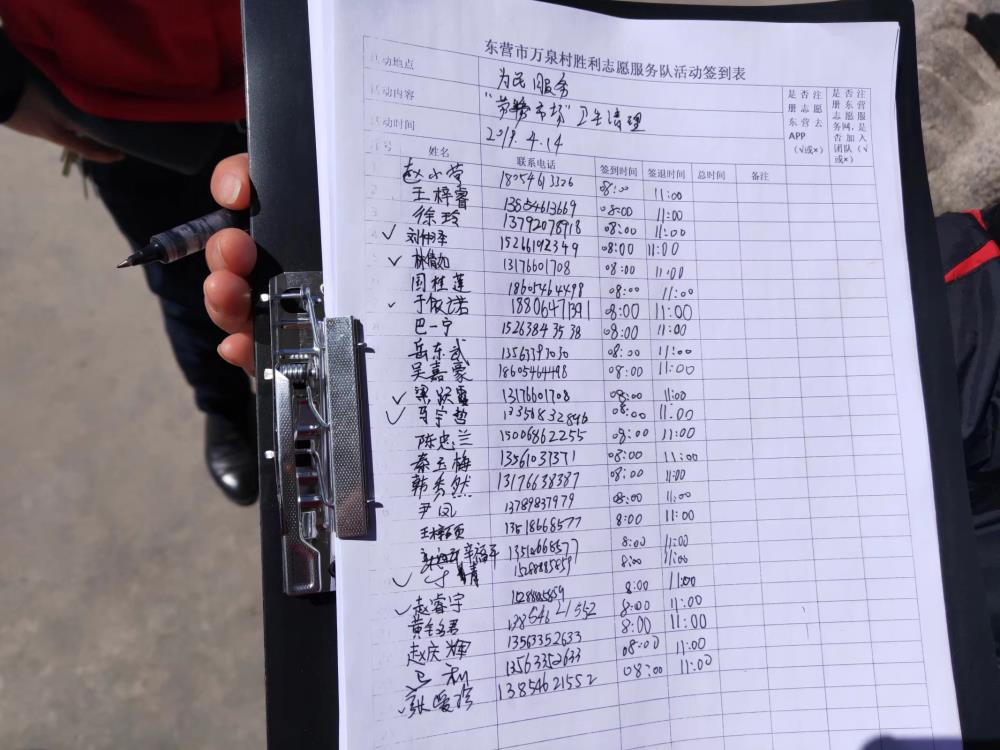 东营市万泉村胜利志愿服务队活动签到表
活动地点 为民服务
活动内容 "劳务市场"卫生清理
活动时间 2019.4.14
是否注册志愿东营去APP(√或×)
是否注册东营志愿服务网,是否加入团队(√或×)
序号 姓名 联系电话 签到时间 签退时间 总时间 备注
1 赵小莹 18054613326 08:00 11:00
2 王梓睿 13854613669 08:00 11:00
3 徐玲 13792078918 08:00 11:00
√ 15266192349 08:00 11:00
√ 13176601708 08:00 11:00
周桂莲 18605464498 08:00 11:00
√ 18806471391 08:00 11:00
巴一宁 15263843538 08:00 11:00
岳东武 13563393030 08:00 11:00
吴嘉豪 18605464498 08:00 11:00
√ 梁跃 13176601708 08:00 11:00
√ 马宇哲 13356832896 08:00 11:00
陈忠兰 15006862255 08:00 11:00
秦玉梅 13561037371 08:00 11:00
韩秀然 13176638387 08:00 11:00
尹凤 13789837979 08:00 11:00
13518668577 8:00 11:00
8:00 11:00
√ 8:00 11:00
√ 赵睿宇 8:00 11:00
13854621552 8:00 11:00
赵庆辉 13563352633 8:00 11:00
13563352633 08:00 11:00
√ 张爱珍 13854621552 08:00 11:00